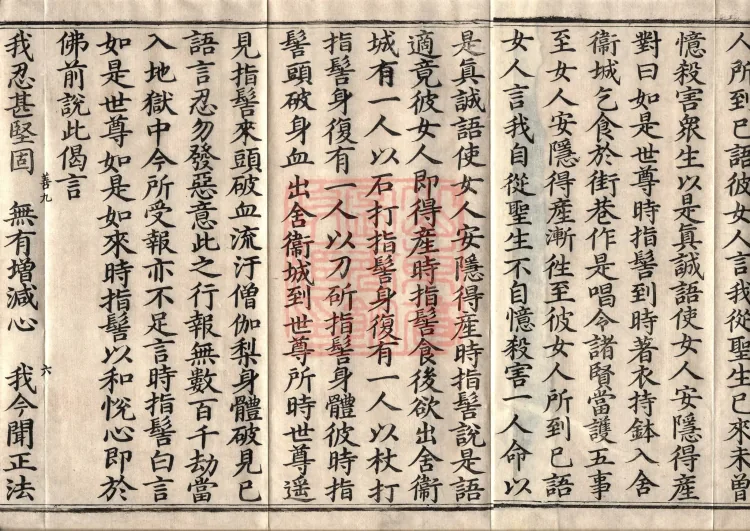 人所到已語彼女人言我從聖生已來未曾
憶殺害衆生以是眞誠語使女人安隱得產
對曰如是世尊時指髻到時著衣持鉢入舍
衞城乞食於街巷作是唱令諸賢當護五事
至女人安隱得產漸往至彼女人所到已語
女人言我自從聖生不自憶殺害一人命以
是眞誠語使女人安隱得產時指髻說是語
適竟彼女人即得産時指髻食後欲出舍衞
城有一人以石打指髻身復有一人以杖打
指髻身復有一人以刀斫指髻身體彼時指
髻頭破身血出舍衞城到世尊所時世尊遥
見指髻來頭破血流汙僧伽梨身體破見已
語言忍勿發惡意此之行報無數百千劫當
入地獄中今所受報亦不足言時指髻白言
如是世尊如是如來時指髻以和悅心即於
佛前說此偈言
善九
六
我忍甚堅固 無有增減心 我今聞正法